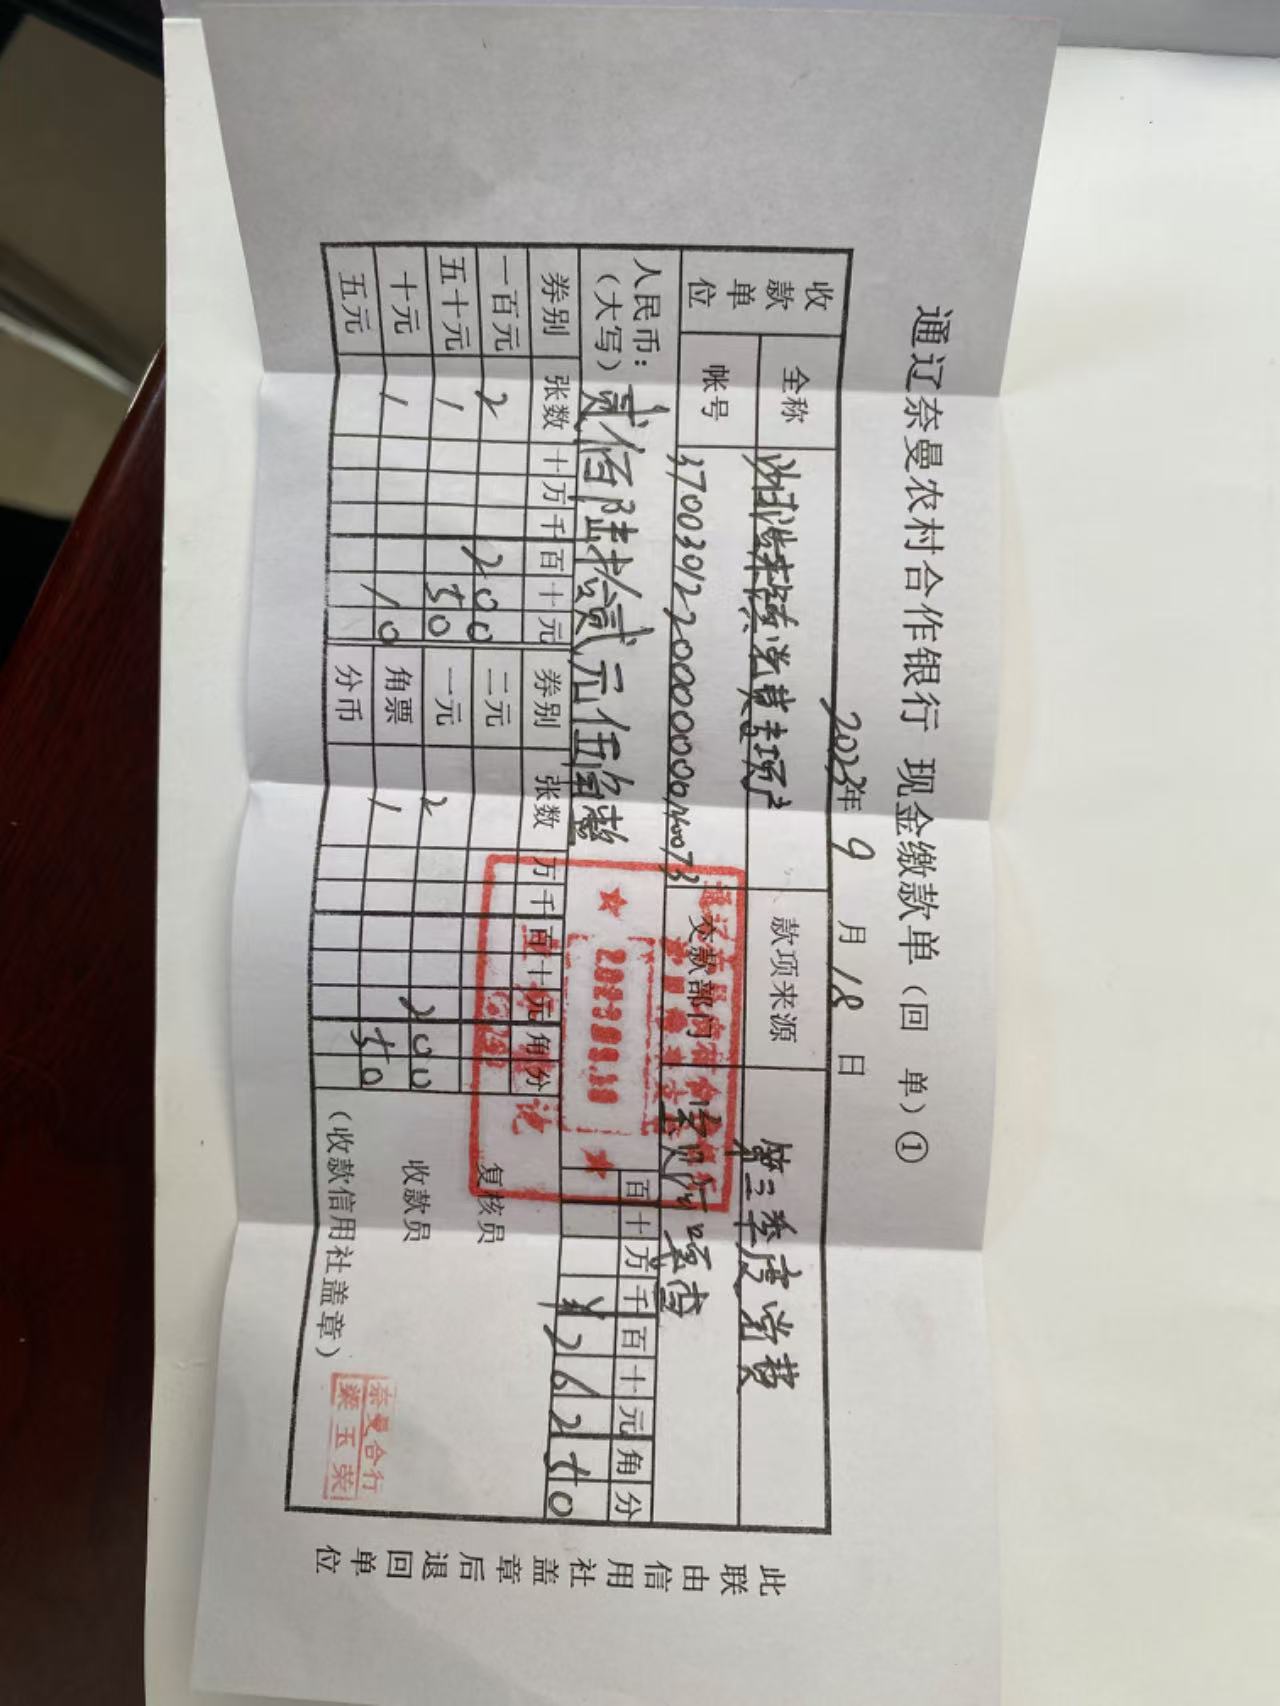 通辽奈曼农村合作银行 现金缴款单（回 单）①
2023年 9 月 18 日
收款单位 全称 党费专户 款项来源 第三季度党费
帐号 交款部门
人民币：（大写） 贰佰陆拾贰元伍角整 百十万千百十元角分
¥26250
券别 张数 十万千百十元 券别 张数 万千百十元角分
一百元 2 200 二元 复核员
五十元 1 50 一元 2 200 收款员
十元 1 10 角票 1 50
五元 分币 （收款信用社盖章）
2023.09.18
奈曼合行
玉荣
此联由信用社盖章后退回单位